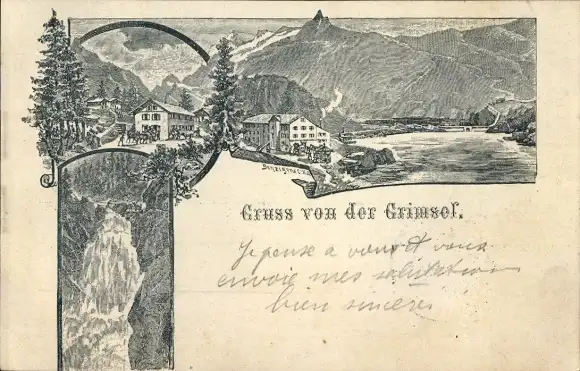 Gruss von der Grimsel.
Je pense a vous et vous
envoie mes salutation
bien sincères